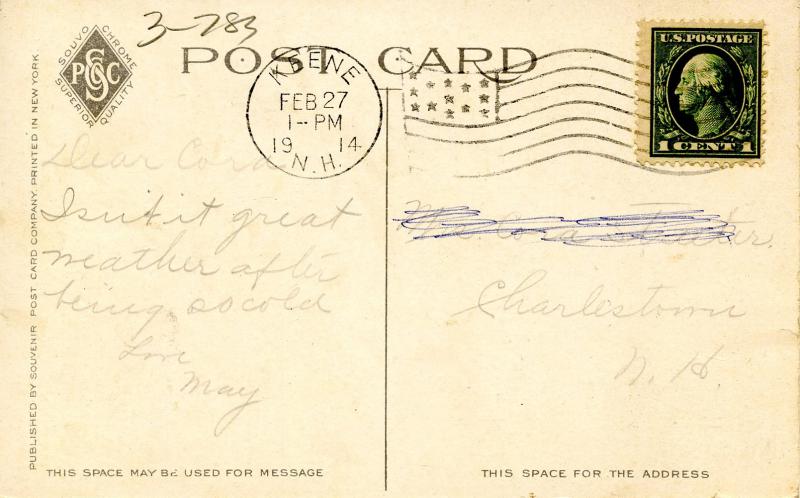 3-783
POST CARD
SOUVO CHROME
PGSC
SUPERIOR QUALITY
KEENE
FEB 27
1-PM
19 14
N.H.
U.S. POSTAGE
1 CENT 1
PUBLISHED BY SOUVENIR POST CARD COMPANY. PRINTED IN NEW YORK
Dear Cora
Isn't it great
weather after
being so cold
Love
May
Charlestown
N. H.
THIS SPACE MAY BE USED FOR MESSAGE
THIS SPACE FOR THE ADDRESS